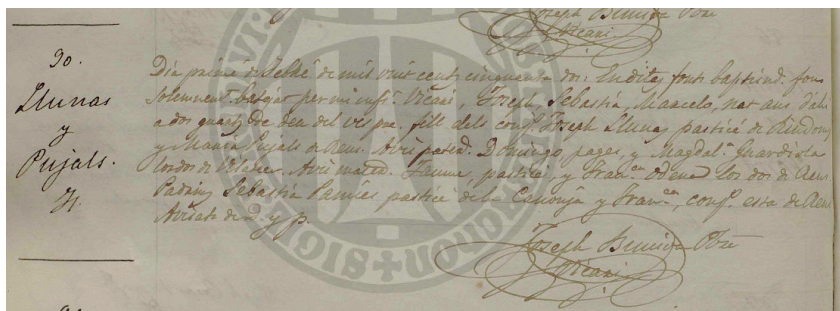 Joseph Benure Pbre
Vicari
90.
Llunas
y
Pujals.
Dia primé de Setbe de mil vuit cents cinquanta dos: En ditas fonts baptism.s fou
solemnent batejat per mi infr. Vicari, Joseph, Sebastiá, Marcelo, nat ans. d'ahi
a dos quarts de deu del vespre. fill dels conso. Joseph Llunas pasticé de Riudoms
y Maria Pujals de Reus. Avis patns. Domingo pages, y Magdal.a Guardiola
los dos de Avis matns. Jaume, pasticé, y Fran.ca Odena los dos de Reus
Padrins Sebastiá pasticé de la Canonja y Fran.ca, conso. esta de Reus
Avisats de D. y p.
Joseph Benure Pbre
Vicari